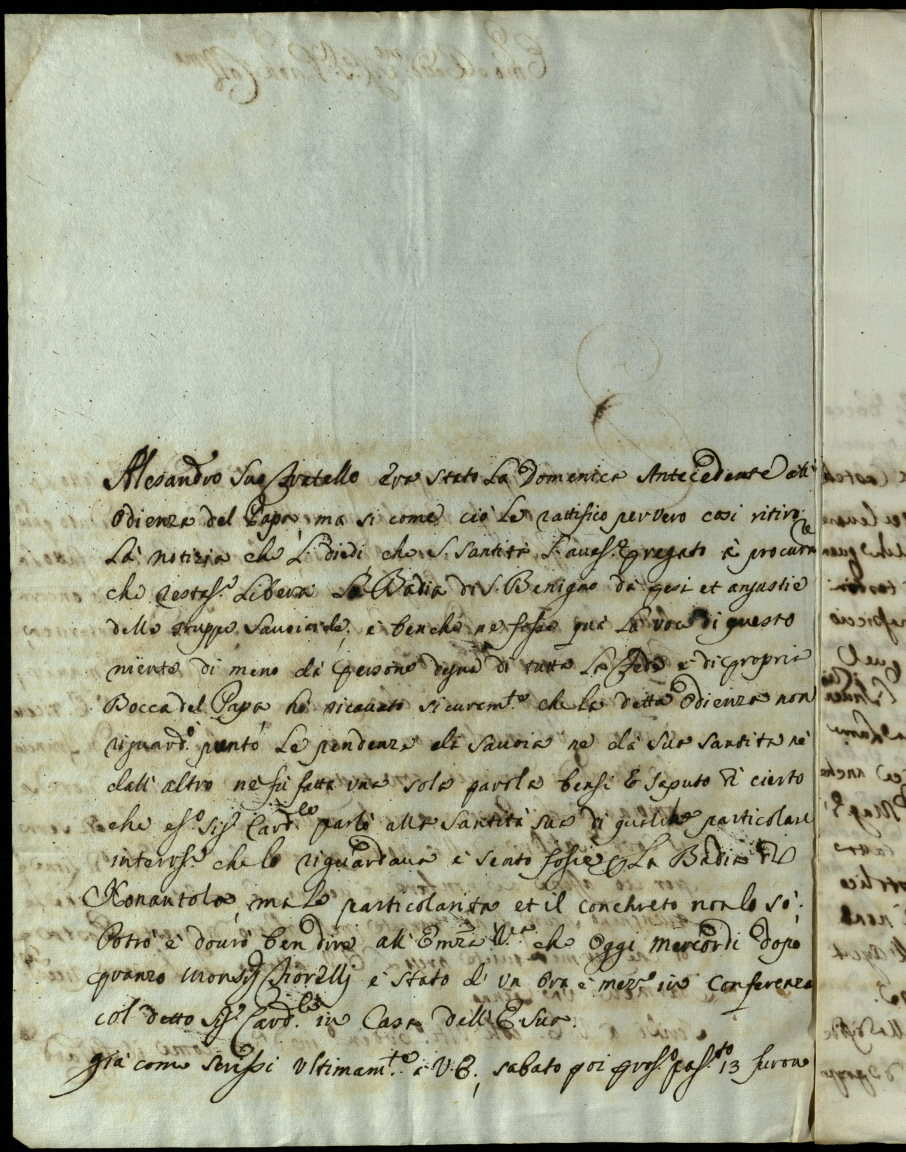 Alesandro suo Fratello era stato La Domenica Antecedente all'
Odienza del Papa, ma si come ciò Le rattifico per vero così ritiro
La notizia che L. diedi che S. Santità L'auess.e pregato à procura
che restass.e Libera La Badia di S. Benigno da pesi et angustie
delle truppe Sauoiarde, e benche ne fosse quà La voce di questo
niente di meno da persone degne di tutta La Fede e di propria
Bocca del Papa hò ricauato sicurem.te che la detta Odienza non
riguardò punto Le pendenze di Sauoia ne da Sua Santità nè
dall'altro ne fù fatta una sola parola bensi hò saputo di certo
che ess.o Sig.r Card.le parlò alla Santità Sua di qualche particolare
interess.e che lo riguardaua e sento fosse La Badia di
Nonantola, ma le particolarità et il concreto non lo sò;
Potrò e dourò ben dire all'Em.za V.ra che Oggi Mercordi dopo
pranzo Monsig.r Fiorelli è stato d'un Ora e mezz.a in Conferenza
col detto Sig.r Card.le in Casa dell'E. Sua.
già come scrissi Ultimam.te à V.E., sabato poi pross.o pass.to 13 furon